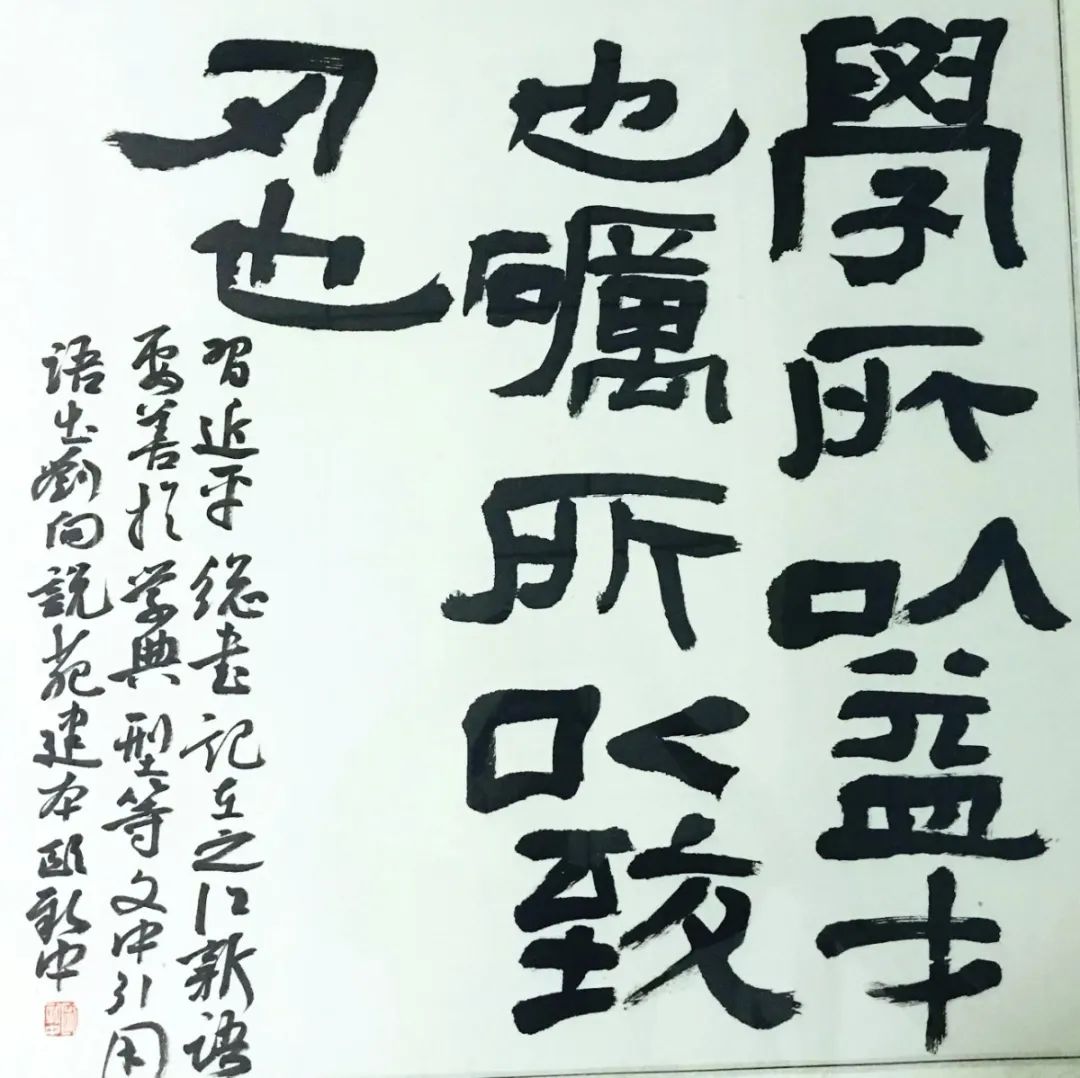 學所以益才
也礪所以致
刃也
習近平総書记在之江新语
要善於学典型等文中引用
语出劉向説苑建本欧新中